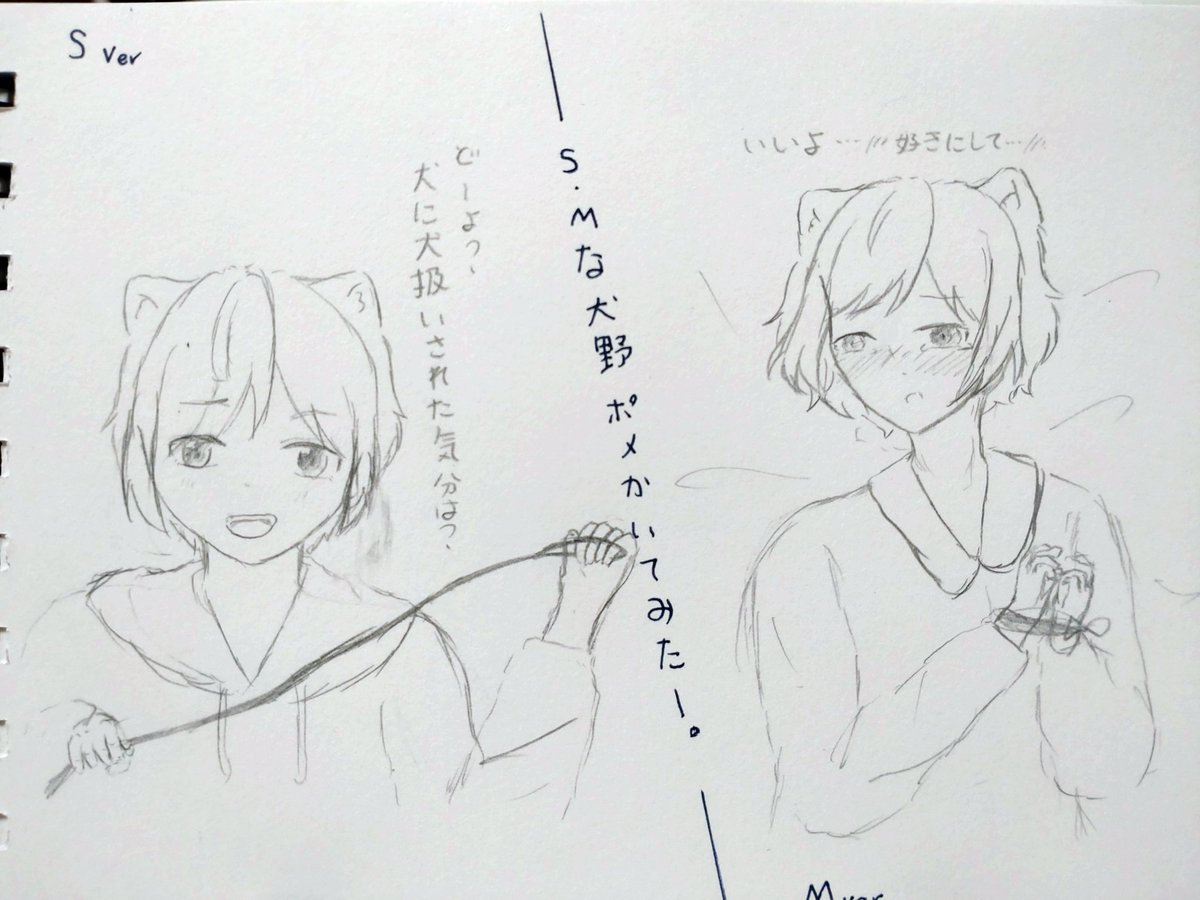 S ver
どーよ?、
犬に犬扱いされた気分は?、
S.Mな犬野ポメかいてみたー。
いいよ…///好きにして…///
M ver